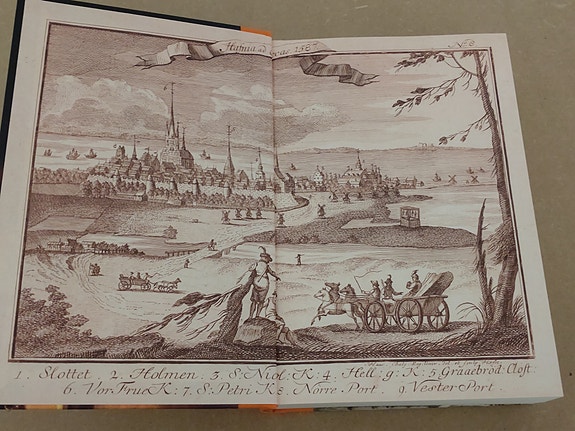 Hafnia ad Vivas 1587
No 8.
1. Slottet. 2. Holmen. 3. S: Niol: K: 4. Hell: g: K: 5. Graaebrod: Clost:
6. Vor Frue K: 7. S: Petri K 8. Norre Port. 9. Vester Port.